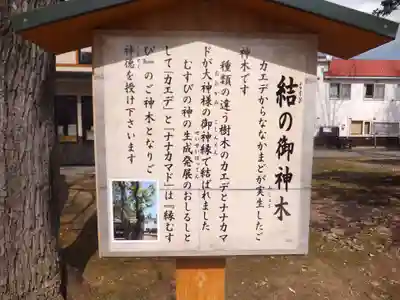 結の御神木
カエデからななかまどが実生したご
神木です
種類の違う樹木のカエデとナナカマ
ドが大神様の御神縁で結ばれました
むすびの神の生成発展のおしるしと
して「カエデ」と「ナナカマド」は『縁むす
び』のご神木となりご
神徳を授け下さいます